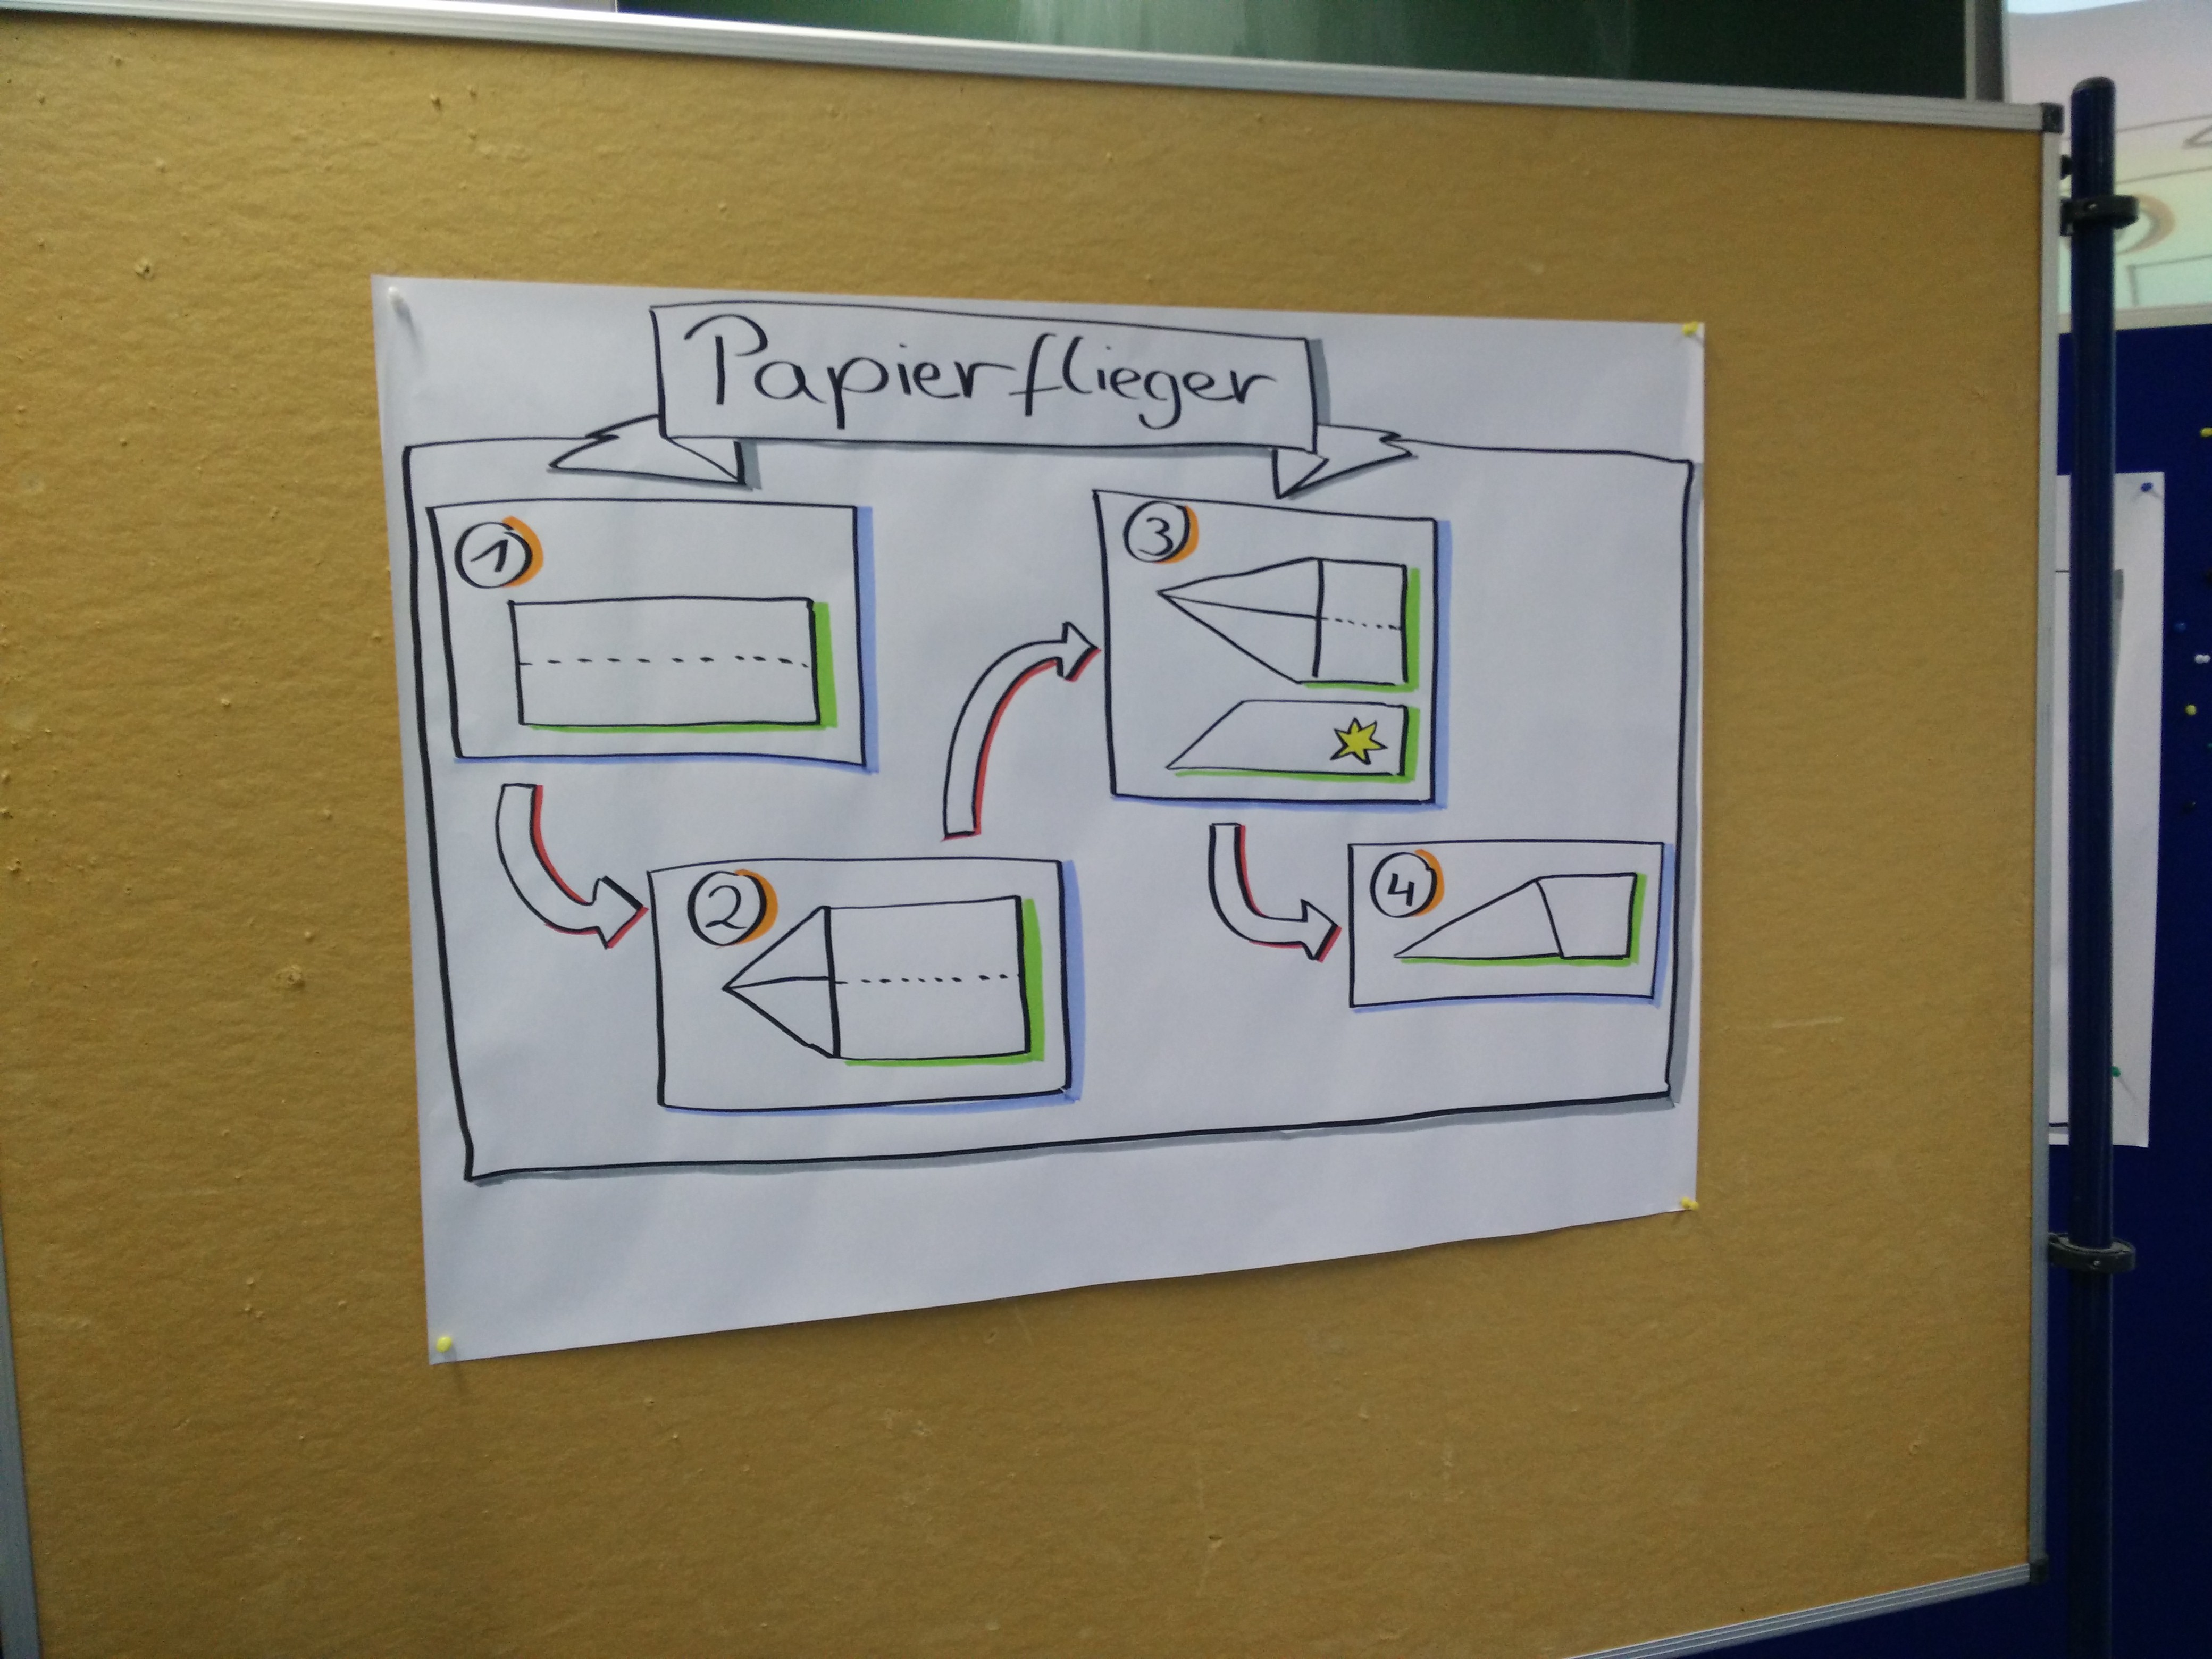 Papierflieger
1
2
3
4